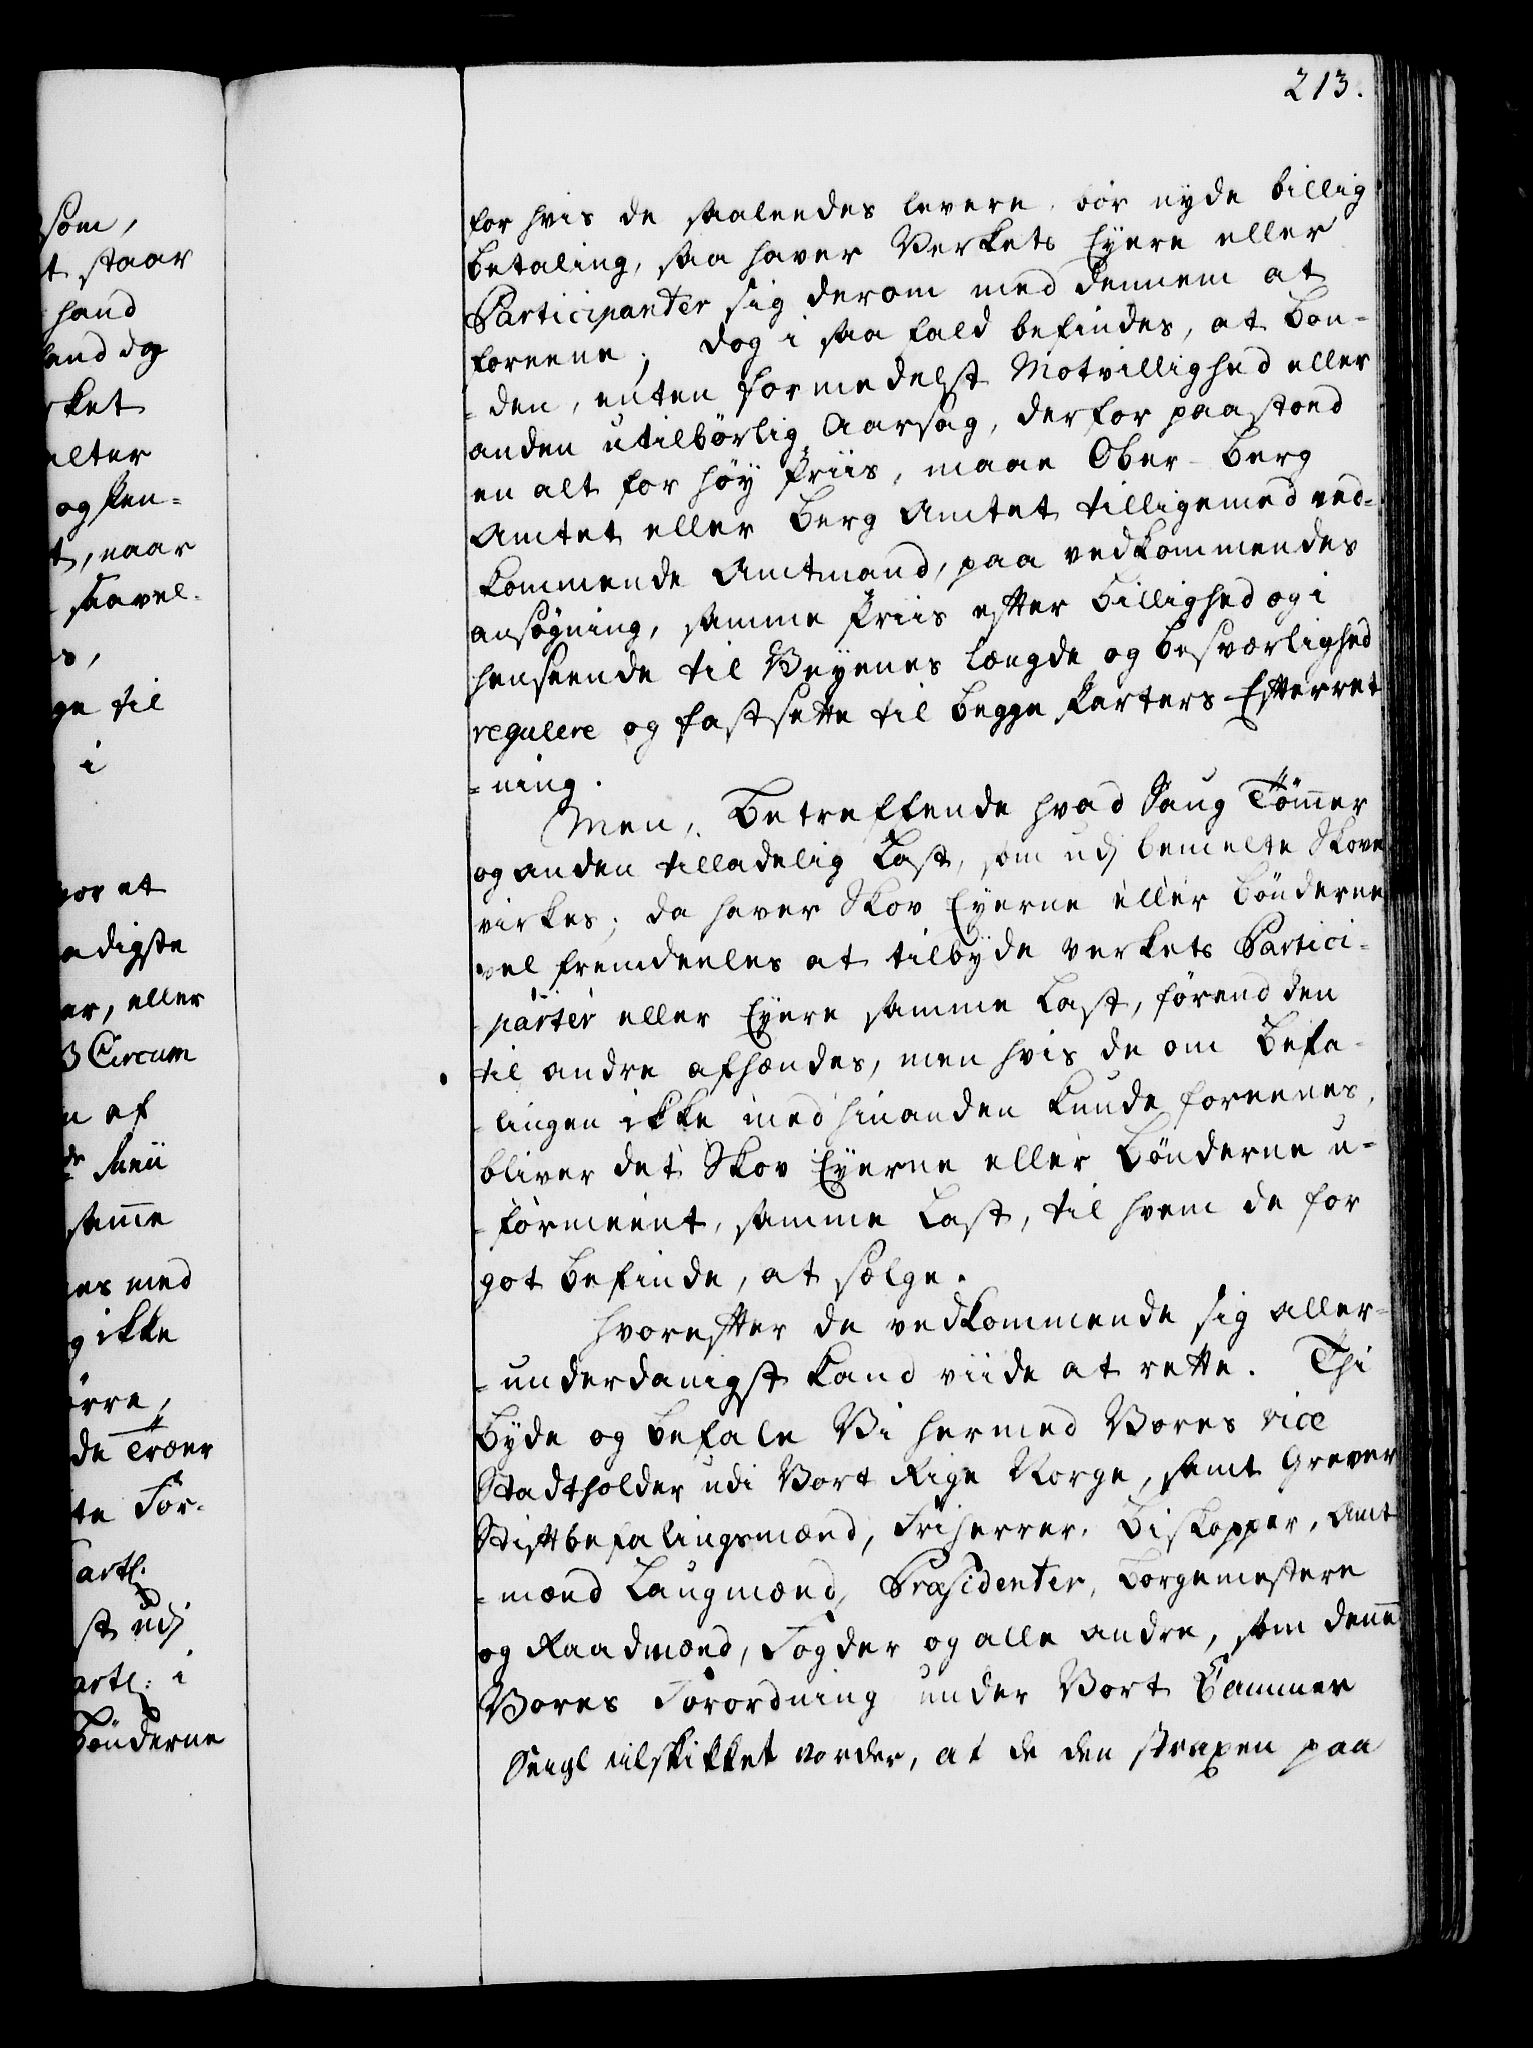 213.
som,
t staar
hand
land og
rket
elter
og ken-
t, naar
saavel-
s,
ge til
i
vor at
adigste
er, eller
3 Circum
n af
samme
es med
g ikke
ørre,
de Træer
te For-
artl.
st udj
artl: i
Bønderne
for hvis de saaleedes levere, bør nyde billig
betaling, saa haver Verkets Eyere eller
Participanter sig derom med dennem at
foreene; dog i saa fald befindes, at Bon-
-den, enten formedelst Motvillighed eller
anden utilbørlig Aarsag, derfor paastoed
en alt for høy Priis, maae Ober-Berg
Amtet eller Berg Amtet tilligemed ved-
kommende Amtmand, paa vedkommendes
ansøgning, samme Priis efter billighed og i
henseende til Veyenes længde og besværlighed
regulere og fastsette til begge Parters Efterret
-ning.
Men, Betreffende hvad Saug Tømmer
og anden tilladelig Last, som udj bemelte Skove
virkes; da haver Skov Eyerne eller Bønderne
vel fremdeeles at tilbyde Verkets Partici-
-panter eller Eyere samme Last, førend den
til andre afhændes, men hvis de om Befa-
-lingen ikke med hinanden kunde foreenes,
bliver det Skov Eyerne eller Bønderne u-
-formeent, samme Last, til hvem de for
got befinde, at sælge.
Hvorefter de vedkommende sig aller-
-underdanigst kand viide at rette. Thi
byde og befale Vi hermed Vores vice
Stadtholder udi Vort Rige Norge, samt Grever
Stiftbefalingsmænd, Friherrer, Biskopper, Amt
-mænd Laugmænd, Præsidenter, Borgemestere
og Raadmænd, Fogder og alle andre, som denne
Vores Forordning under Vort Cammer
Seigl tilskikket vorder, at de den straxen paa